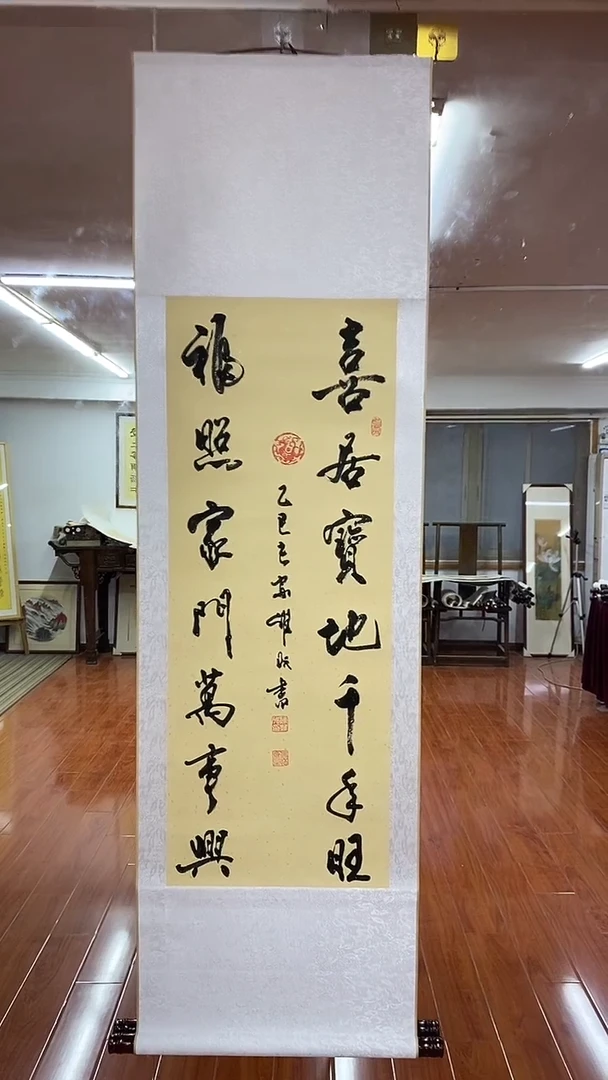 喜居寶地千年旺
福照家門萬事興
乙巳
書